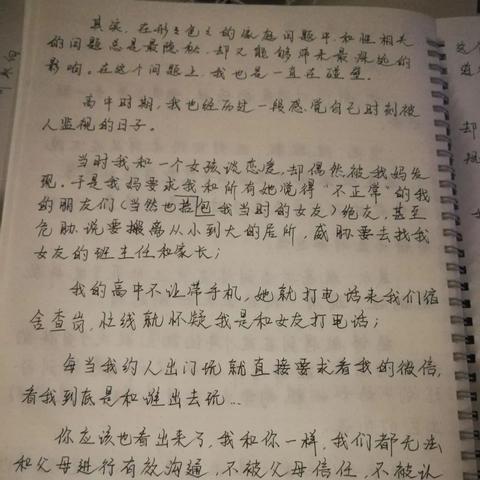 其实，在形形色色的家庭问题中，和性相关
的问题总是最隐秘，却又能够带来最深远的
影响。在这个问题上，我也是一直在碰壁。
高中时期，我也经历过一段感觉自己时刻被
人监视的日子。
当时我和一个女孩谈恋爱，却偶然被我妈发
现。于是我妈要求我和所有她觉得“不正常”的我
的朋友们（当然也包我当时的女友）绝友，甚至
危胁说要搬离从小到大的居所，威胁要去找我
女友的班主任和家长；
我的高中不让带手机，她就打电话来我们宿
舍查岗，忙线就怀疑我是和女友打电话；
每当我约人出门玩就直接要求看我的微信，
看我到底是和谁出去玩...
你应该也看出来了，我和你一样，我们都无法
和父母进行有效沟通，不被父母信任，不被认